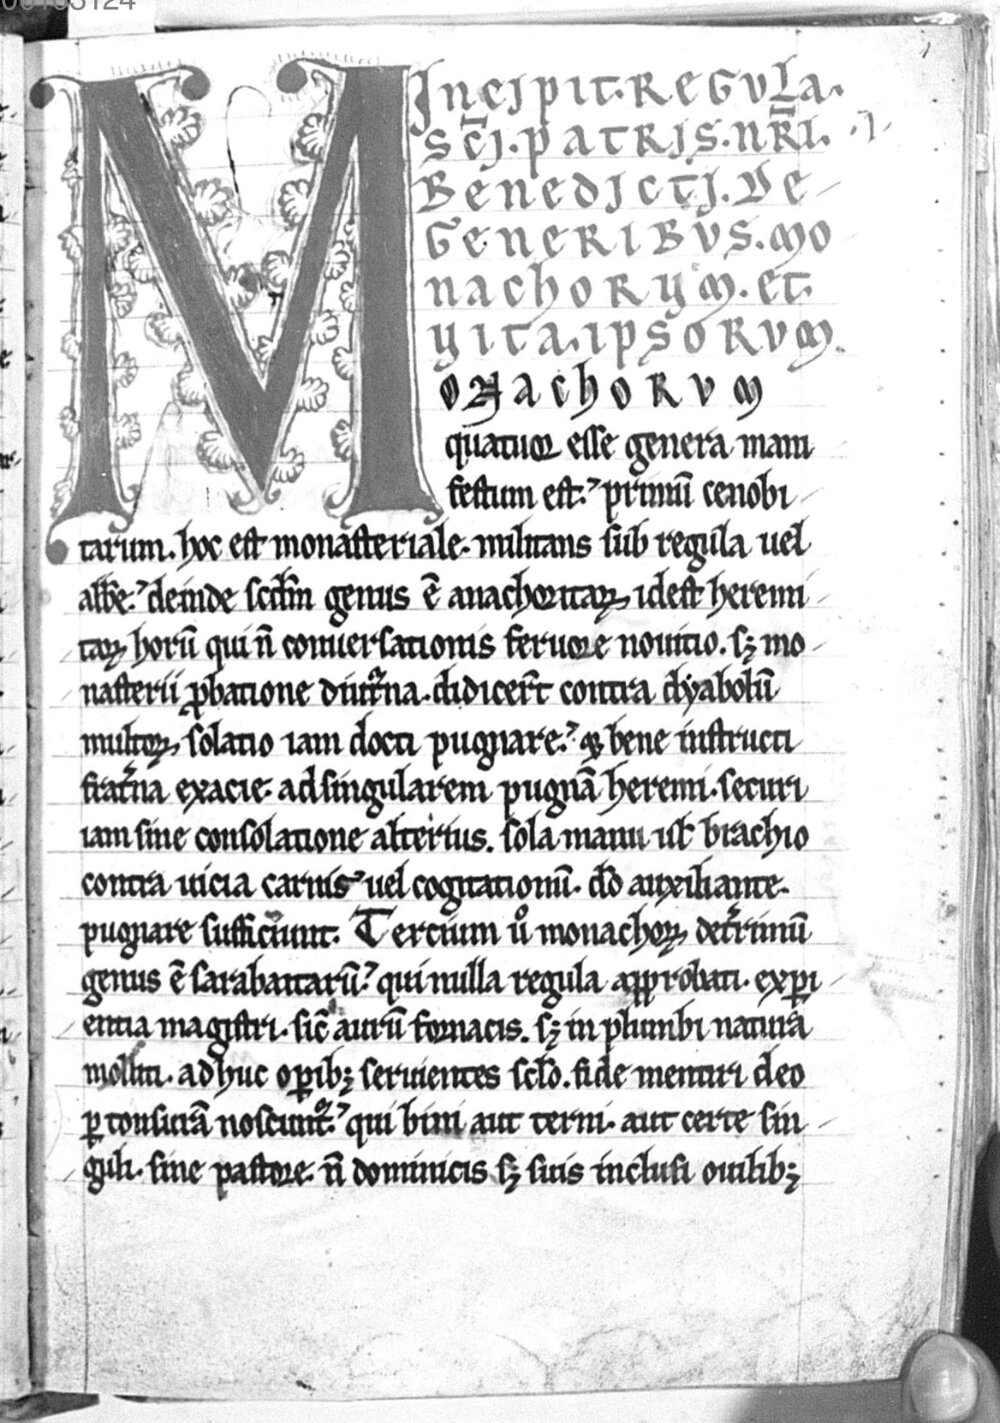 INCIPIT. REGULA.
SC̄I. PATRIS. NR̄I. .I.
BENEDICTI. DE
GENERIBVS. MO
NACHORUM. ET
UITA. IPSORVM.
MONACHORVM
quatuor esse genera mani
festum est. primū cenobi
tarum. hoc est monasteriale. militans sub regula uel
abbe. deinde scdm genus ē anachoritaꝝ idest heremi
taꝝ horū qui n̄ conuersationis feruore nouitio. sꝫ mo
nasterii ꝓbatione diutᷓna. didicert̄ contra dyabolū
multoꝝ solatio iam docti pugnare. ⁊ bene instructi
frat̄na ex acie. ad singularem pugnā heremi. securi
iam sine consolatione alterius. sola manu ut brachio
contra uicia carnis uel cogitationū. dō auxiliante.
pugnare sufficiunt. Tercium ů monachoꝝ det̄rimū
genus ē sarabaitarū. qui nulla regula approbati. exꝑi
entia magistri. sic̄ aurū fornacis. sꝫ in plumbi natura
molliti. adhuc oꝑibꝫ seruientes sc̄lo. fide mentiri deo
ꝑ tonsurā noscunt᷑. qui bini aut terni. aut certe sin
guli. sine pastore. n̄ dominicis sꝫ suis inclusi ouilibꝫ